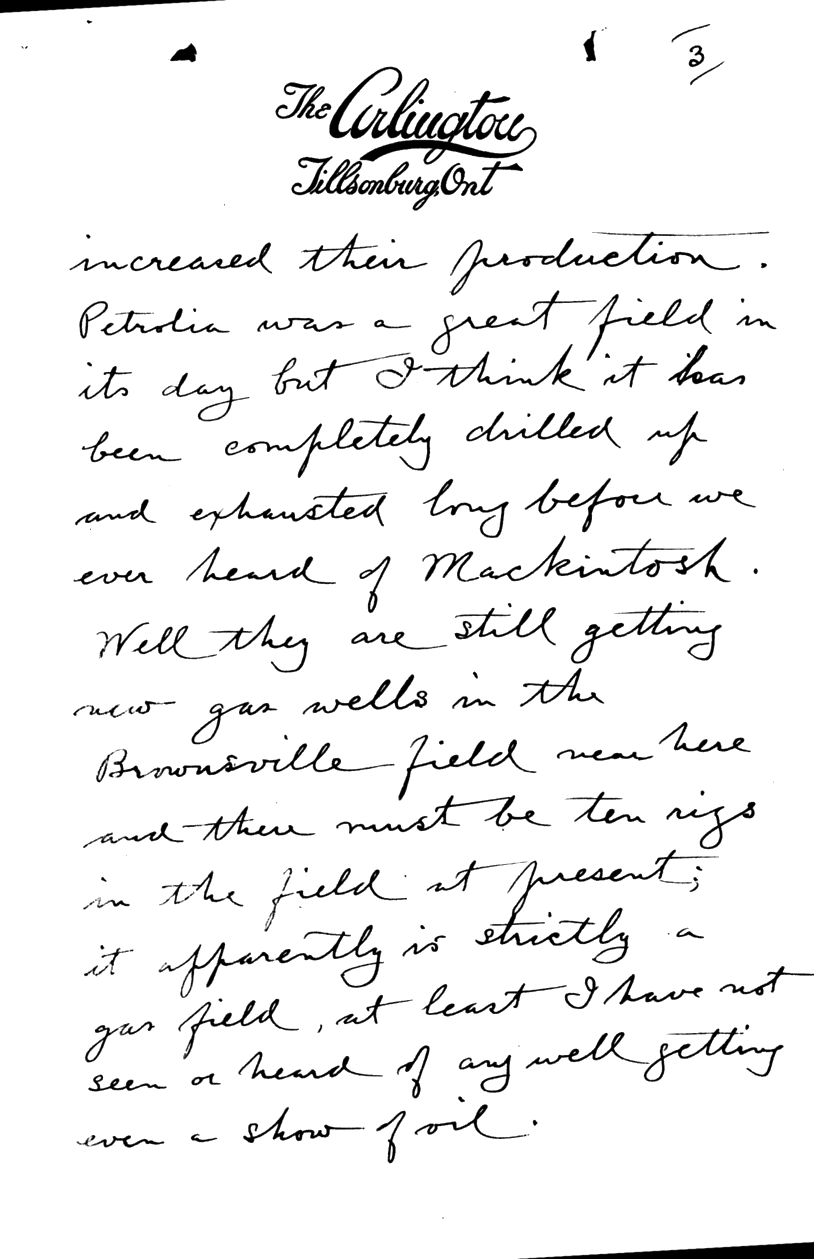 3
The Arlington
Tillsonburg, Ont
increased their production.
Petrolia was a great field in
its day but I think it has
been completely drilled up
and exhausted long before we
ever heard of Mackintosh.
Well they are still getting
new gas wells in the
Brownsville field near here
and there must be ten rigs
in the field at present;
it apparently is strictly a
gas field, at least I have not
seen or heard of any well getting
even a show of oil.